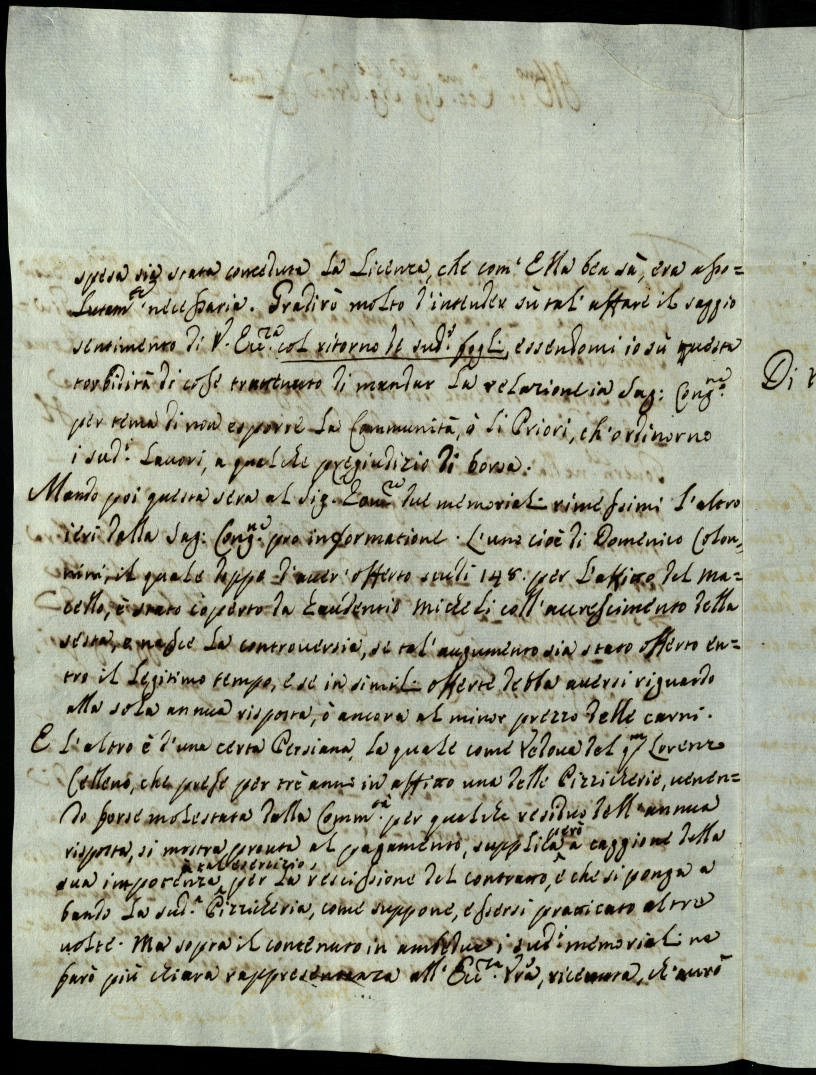 spesa sia stata conceduta la Licenza, che com' Ella ben sà, era asso=
lutam.te necessaria. Gradirò molto d'intender sù tal' affare il saggio
sentimento di V. Ecc.za col ritorno de sud.i fogli, essendomi io sù questa
torbidità di cose trattenuto di mandar la relazione in Sag: Cong.ne
per tema di non esporre la Communità, ò li Priori, ch'ordinorno
i sud.i Lavori, a qualche pregiudizio di borsa.
Mando poi questa sera al Sig. due memoriali rimessimi l'altro
ieri dalla Sag: Cong.ne pro informatione. L'uno cioè di Domenico Colon=
nini, il quale doppo d'aver' offerto scudi 148. per l'affitto del ma=
cello, è stato coperto da Gaudentio Micheli coll'accrescimento della
sesta, e nasce la controversia, se tal' augumento sia stato offerto en=
tro il legitimo tempo, e se in simili offerte debba aversi riguardo
alla sola annua risposta, ò ancora al minor prezzo delle carni.
E l'altro è d'una certa Persiana, la quale come Vedova del qm. Lorenzo
Celleno, che prese per trè anni in affitto una delle Pizzicherie, venen=
do forse molestata dalla Comm.tà per qualche residuo dell'annua
risposta, si mostra pronta al pagamento, supplica però a caggione della
sua impotenza à tal esercizio, per la rescissione del contratto, è che si ponga a
bando la sud.a Pizzicheria, come suppone, essersi praticato altre
volte. Ma sopra il contenuto in ambidue i sud.i memoriali ne
farò più chiara rappresentanza all' Ecc.za Vra, ricevuta, ch'avrò
Di